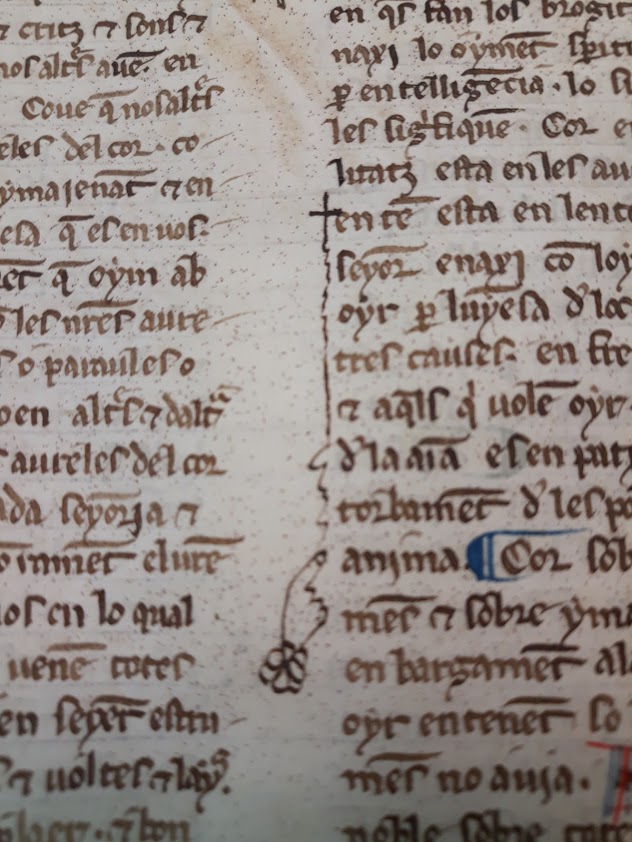 ⁊ critz ⁊ sons ⁊
nosaltrs auē. en
Coue q̄ nosaltrs
eles del cor. co
ymajenāt ⁊ en
esa q̄ es en uos.
q̄ oym ab
les nr̄es aure
s o paraules o
en altrs ⁊ daltra
s aureles del cor
ada seyoria ⁊
elurē
os en lo qual
uenē totes
en seyer estan
⁊ uoltes ⁊ lays.
⁊ bon
en qs fan los brogit
naxi lo oymēt spirit
ꝑ entelligēcia. lo
les sigfiquē. Cor e
litatz esta en les au
en tē esta en lent
seyor enaxi cō loy
oyr ꝑ luyesa d'loc
tres causes. en fre
⁊ aqls q' uolē oyr
d'la aīa es en
torbamēt d'les
anima. ¶ Cor sob
mēs ⁊ sobre yma
en bargamēt al
oyr entenēt so
mēs no auia.
noble sobre tote